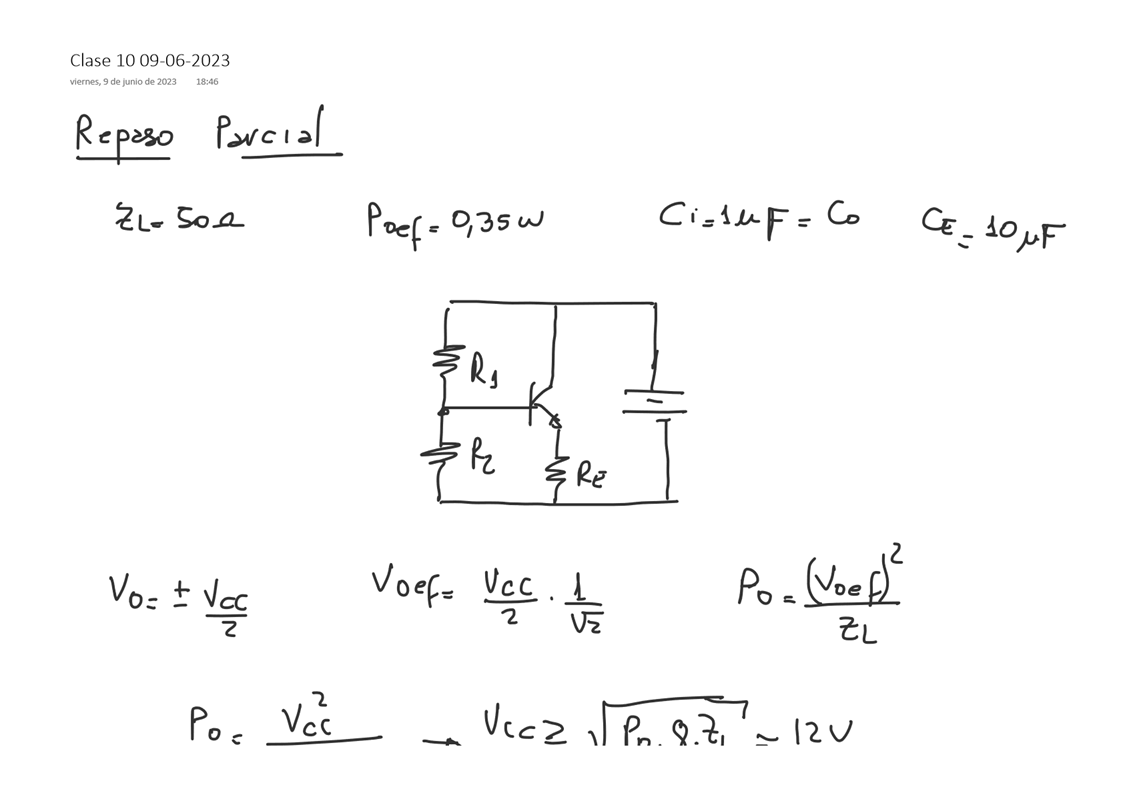 Clase 10 09-06-2023
viernes, 9 de junio de 2023 18:46
Repaso Parcial
ZL= 50Ω Poef= 0,35W Ci=1μF= Co CE= 10μF
R1
R2
RE
Vo= ± Vcc/2 Voef= Vcc/2 · 1/√2 Po= (Voef)²/ZL
Po= Vcc² → Vcc≥ √Po.8.ZL ≃ 12V